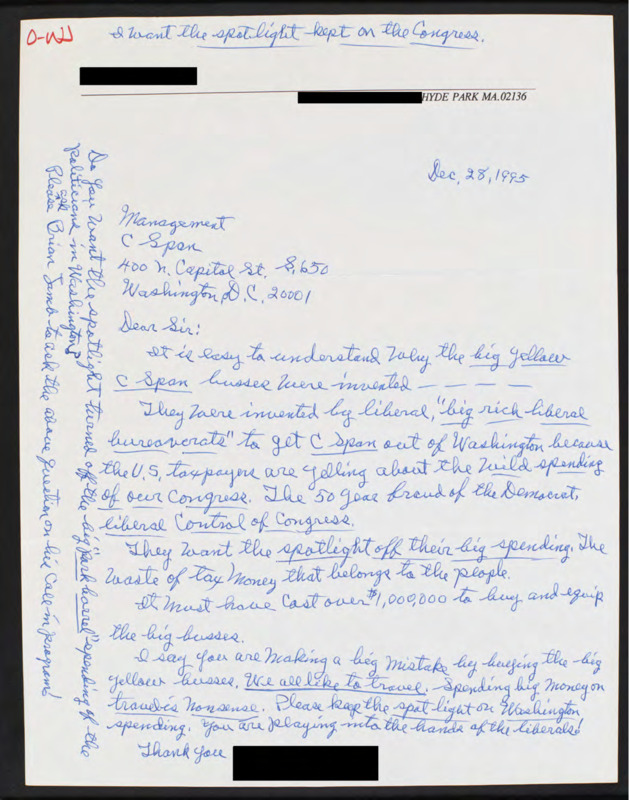 I want the spotlight kept on the Congress.
HYDE PARK MA.02136
Dec, 28, 1995
Management
C Span
400 N. Capitol St. S.650
Washington, D.C, 20001
Dear Sir:
It is easy to understand why the big yellow
C Span busses were invented — — — —
They were invented by liberal, "big rich liberal
bureaucrats" to get C Span out of Washington because
the U.S, taxpayers are yelling about the wild spending
of our Congress. The 50 year fraud of the Democrat,
liberal Control of Congress.
They want the spotlight off their big spending. The
waste of tax money that belongs to the people.
It must have cost over $1,000,000 to buy and equip
the big busses.
I say you are making a big mistake by buying the big
yellow busses. We all like to travel. Spending big money on
travel is nonsense. Please keep the spot light on Washington
spending. You are playing into the hands of the liberals!
Thank you
Do you want the spotlight turned off the big "pork barrel" spending of the
politicians in Washington?
Please ask Brian Lamb to ask the above question on his call-in program!